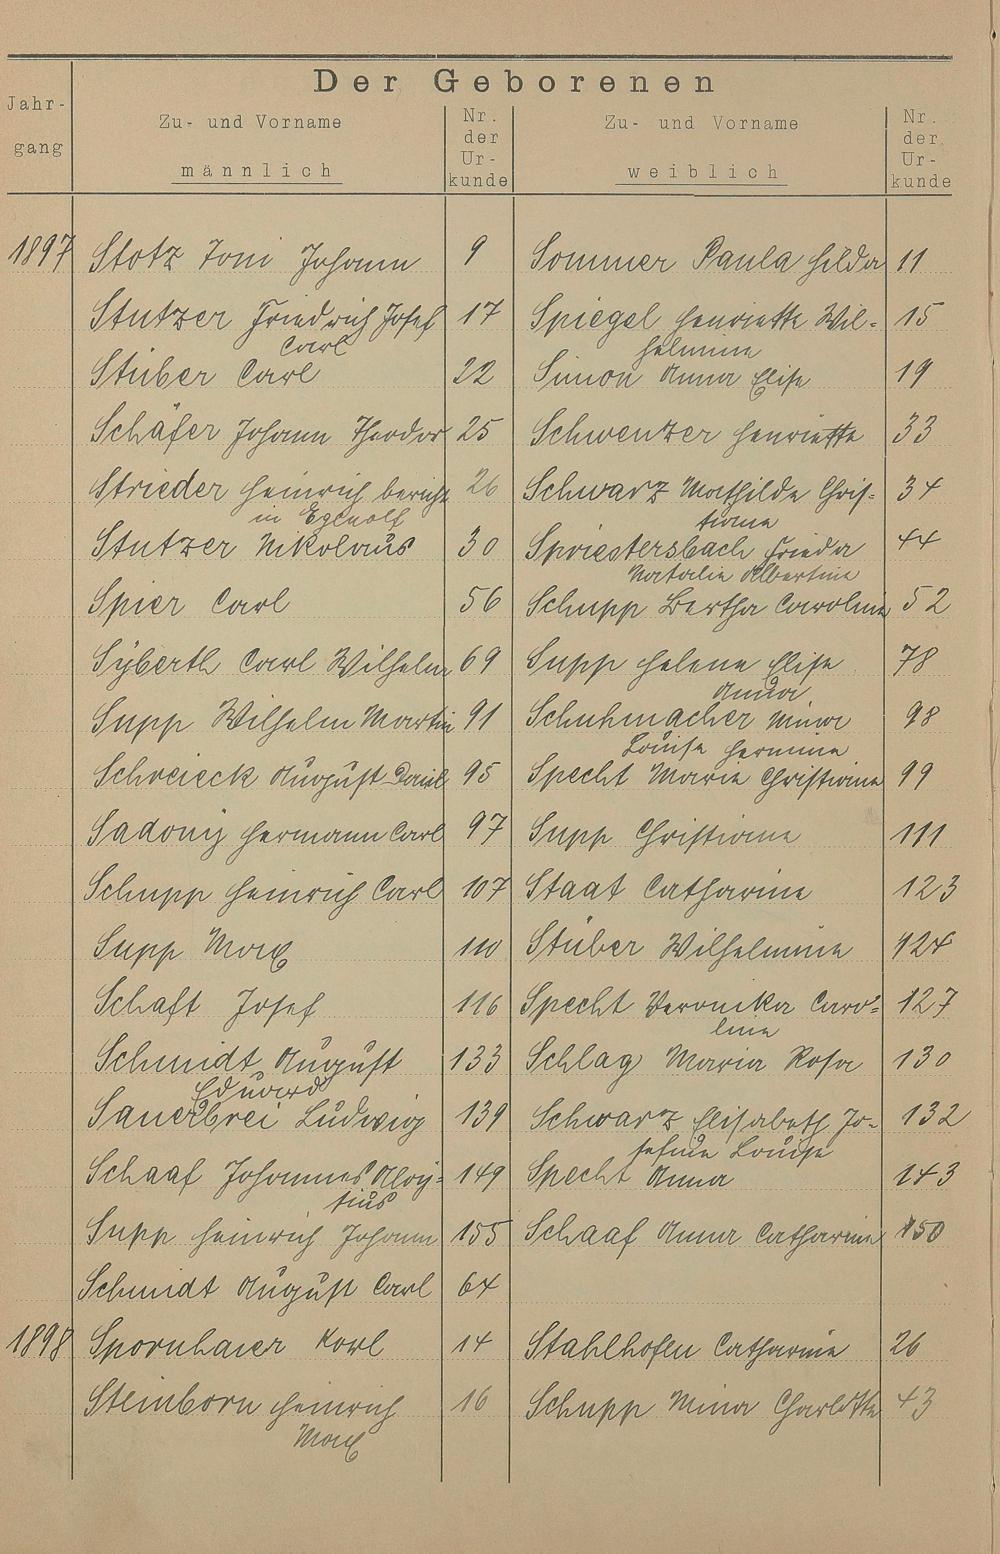 Der Geborenen
Jahr-
gang
Zu- und Vorname
männlich
Nr.
der
Ur-
kunde
Zu- und Vorname
weiblich
Nr.
der
Ur-
kunde
1897 Stotz Toni Johann 9 Sommer Paula Hilda 11
Stutzer Friedrich Josef 17 Spiegel Henriette Wil- 15
Carl helmine
Stüber Carl 22 Simon Anna Elise 19
Schäfer Johann Theodor 25 Schwenzer Henriette 33
Strieder Heinrich bericht 26 Schwarz Mathilde Chris- 34
in Egenolf tiane
Stutzer Nikolaus 30 Spriestersbach Frieda 44
Natalie Albertine
Spier Carl 56 Schupp Bertha Caroline 52
Syberth Carl Wilhelm 69 Supp Helene Elise 78
Anna
Supp Wilhelm Martin 91 Schuhmacher Mina 98
Louise Hermine
Schreieck August Daniel 95 Specht Maria Christiane 99
Sadony Hermann Carl 97 Supp Christiane 111
Schupp Heinrich Carl 107 Staat Catharine 123
Supp Max 110 Stüber Wilhelmine 124
Schaft Josef 116 Specht Veronika Caro- 127
line
Schmidt August 133 Schlag Maria Rosa 130
Eduard
Sauerbrei Ludwig 139 Schwarz Elisabeth Jo- 132
sefine Louise
Schaaf Johannes Aloy- 149 Specht Anna 143
sius
Supp Heinrich Johann 155 Schaaf Anna Catharine 150
Schmidt August Carl 64
1898 Spornhaier Karl 14 Stahlhofen Catharine 26
Steinborn Heinrich 16 Schupp Mina Charlotte 43
Max